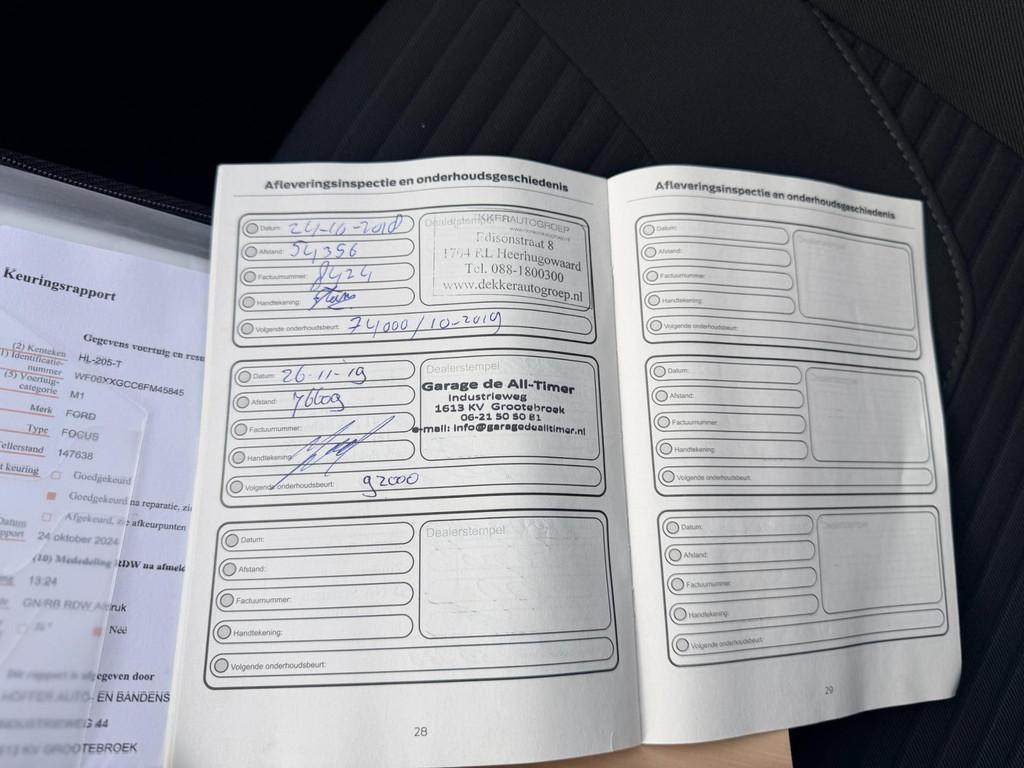 Keuringsrapport
Gegevens voertuig en resu
(2) Kenteken HL-205-T
1) Identificatie-nummer WF06XXGCC6FM45845
(5) Voertuig-categorie M1
Merk FORD
Type FOCUS
Tellerstand 147638
t keuring Goedgekeurd
Goedgekeurd na reparatie, zie
Afgekeurd, zie afkeurpunten
Datum
pport 24 oktober 2024
(10) Mededeling RDW na afmeld
13:24
GN/RB RDW Afdruk
Ja Neé
Dit rapport is afgegeven door
HOFFER AUTO- EN BANDENS
INDUSTRIEWEG 44
613 KV GROOTEBROEK
Afleveringsinspectie en onderhoudsgeschiedenis
Datum: 24-10-2018
Afstand: 54,356
Factuurnummer: 8424
Handtekening:
Volgende onderhoudsbeurt: 74000/10-2019
Dealerstempel KKERAUTOGROEP
Edisonstraat 8
1704 RL Heerhugowaard
Tel. 088-1800300
www.dekkerautogroep.nl
Datum: 26-11-19
Afstand: 76609
Factuurnummer:
Handtekening:
Volgende onderhoudsbeurt: 92000
Dealerstempel
Garage de All-Timer
Industrieweg
1613 KV Grootebroek
06-21 50 50 81
e-mail: info@garagedealltimer.nl
Datum:
Afstand:
Factuurnummer:
Handtekening:
Volgende onderhoudsbeurt:
Dealerstempel
28
Afleveringsinspectie en onderhoudsgeschiedenis
Datum:
Afstand:
Factuurnummer:
Handtekening:
Volgende onderhoudsbeurt:
Dealerstempel
Datum:
Afstand:
Factuurnummer:
Handtekening:
Volgende onderhoudsbeurt:
Dealerstempel
Datum:
Afstand:
Factuurnummer:
Handtekening:
Volgende onderhoudsbeurt:
Dealerstempel
29